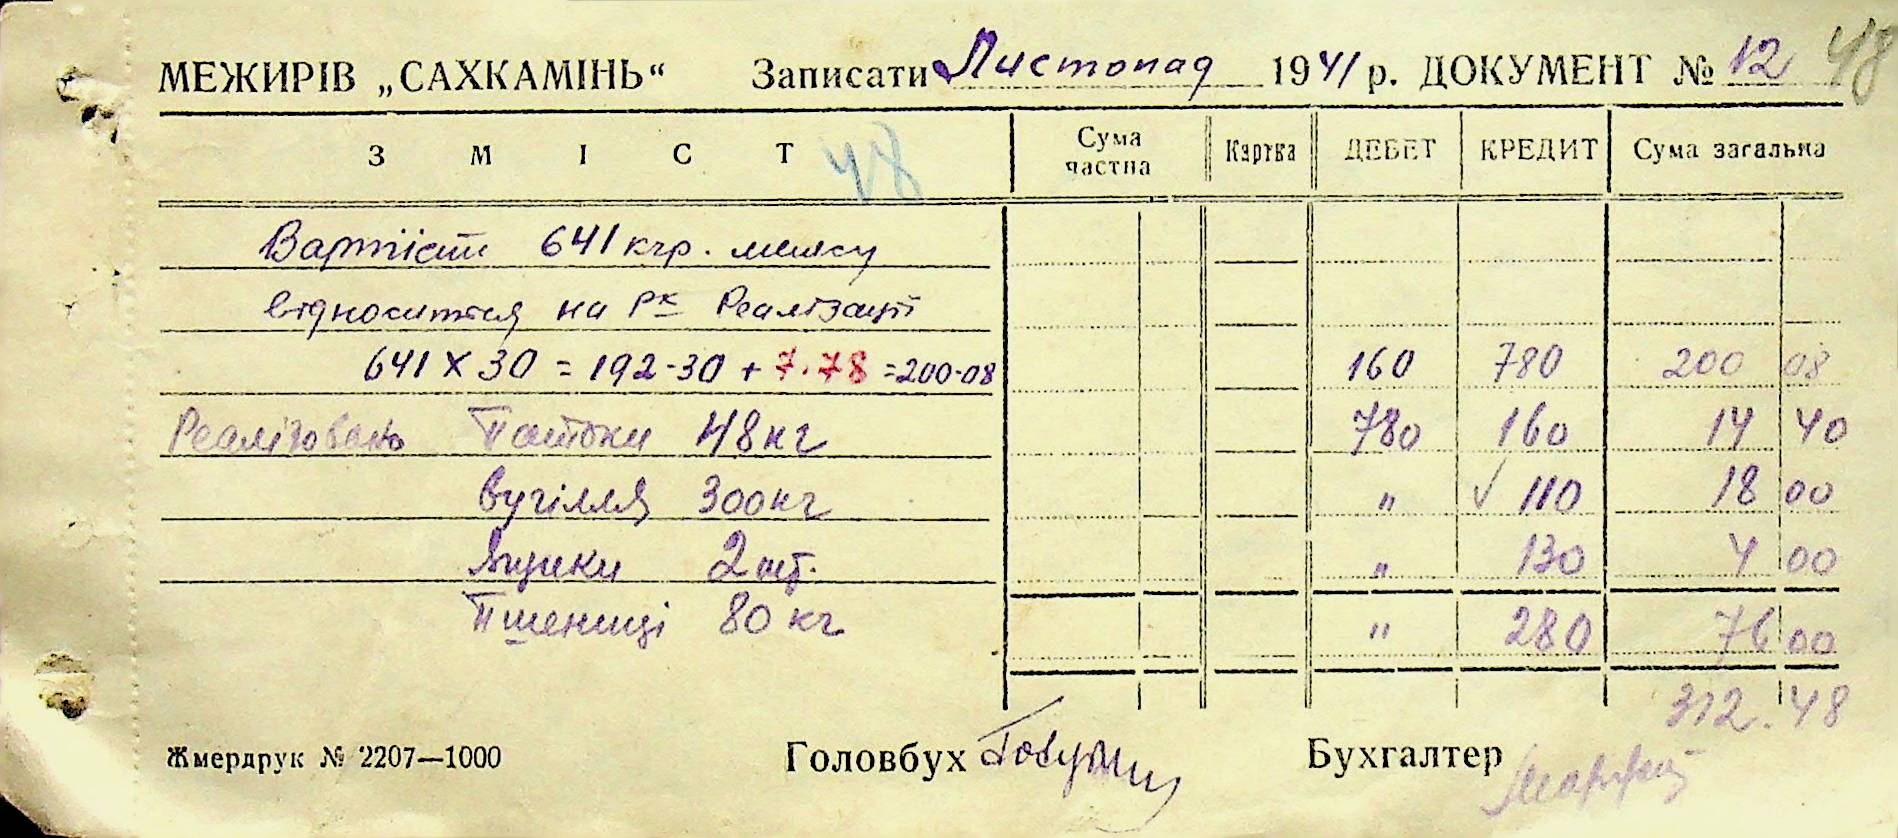 МЕЖИРІВ „САХКАМІНЬ“ Записати Листопад 1941 р. ДОКУМЕНТ № 12 48
ЗМІСТ 48 Сума частна Картка ДЕБЕТ КРЕДИТ Сума загальна
Вартість 641 кгр.
відноситься на Рк Реалізації
641 х 30 = 192-30 + 7.78 = 200-08 160 780 200 08
Реалізовано Патоки 48 кг 780 160 14 40
вугілля 300 кг " ✓ 110 18 00
Ящики 2 шт. " 130 4 00
Пшениці 80 кг " 280 76 00
312.48
Жмердрук № 2207—1000 Головбух Бухгалтер